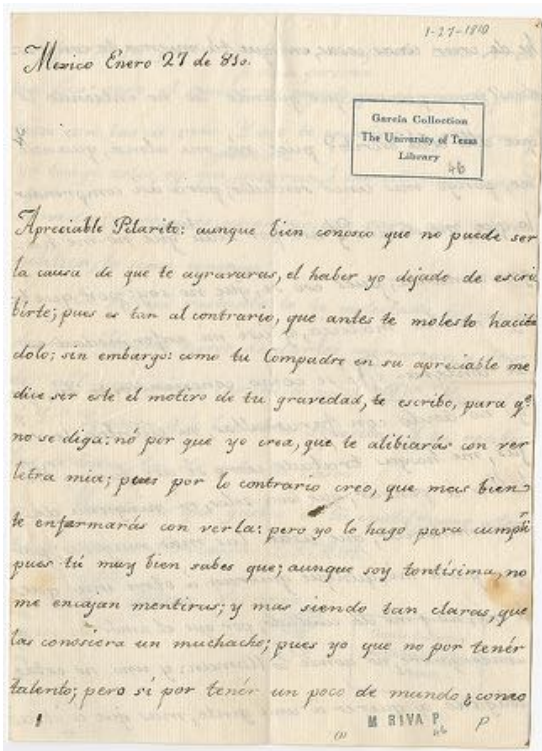 1-27-1810
Mexico Enero 27 de 810.
García Collection
The University of Texas
Library
46
Apreciable Pilarito: aunque bien conosco que no puede ser
la causa de que te agravaras, el haber yo dejado de escri
birte; pues es tan al contrario, que antes te molesto hacien
dolo; sin embargo: como tu Compadre en su apreciable me
dice ser este el motivo de tu gravedad, te escribo, para q.e
no se diga: nó por que yo crea, que te alibiarás con ver
letra mia; pues por lo contrario creo, que mas bien
te enfermarás con verla: pero yo lo hago para cumplir
pues tú muy bien sabes que; aunque soy tontísima, no
me encajan mentiras; y mas siendo tan claras, que
las conosiera un muchacho; pues yo que no por tenér
talento; pero sí por tenér un poco de mundo ¿como
M RIVA P.
46
P